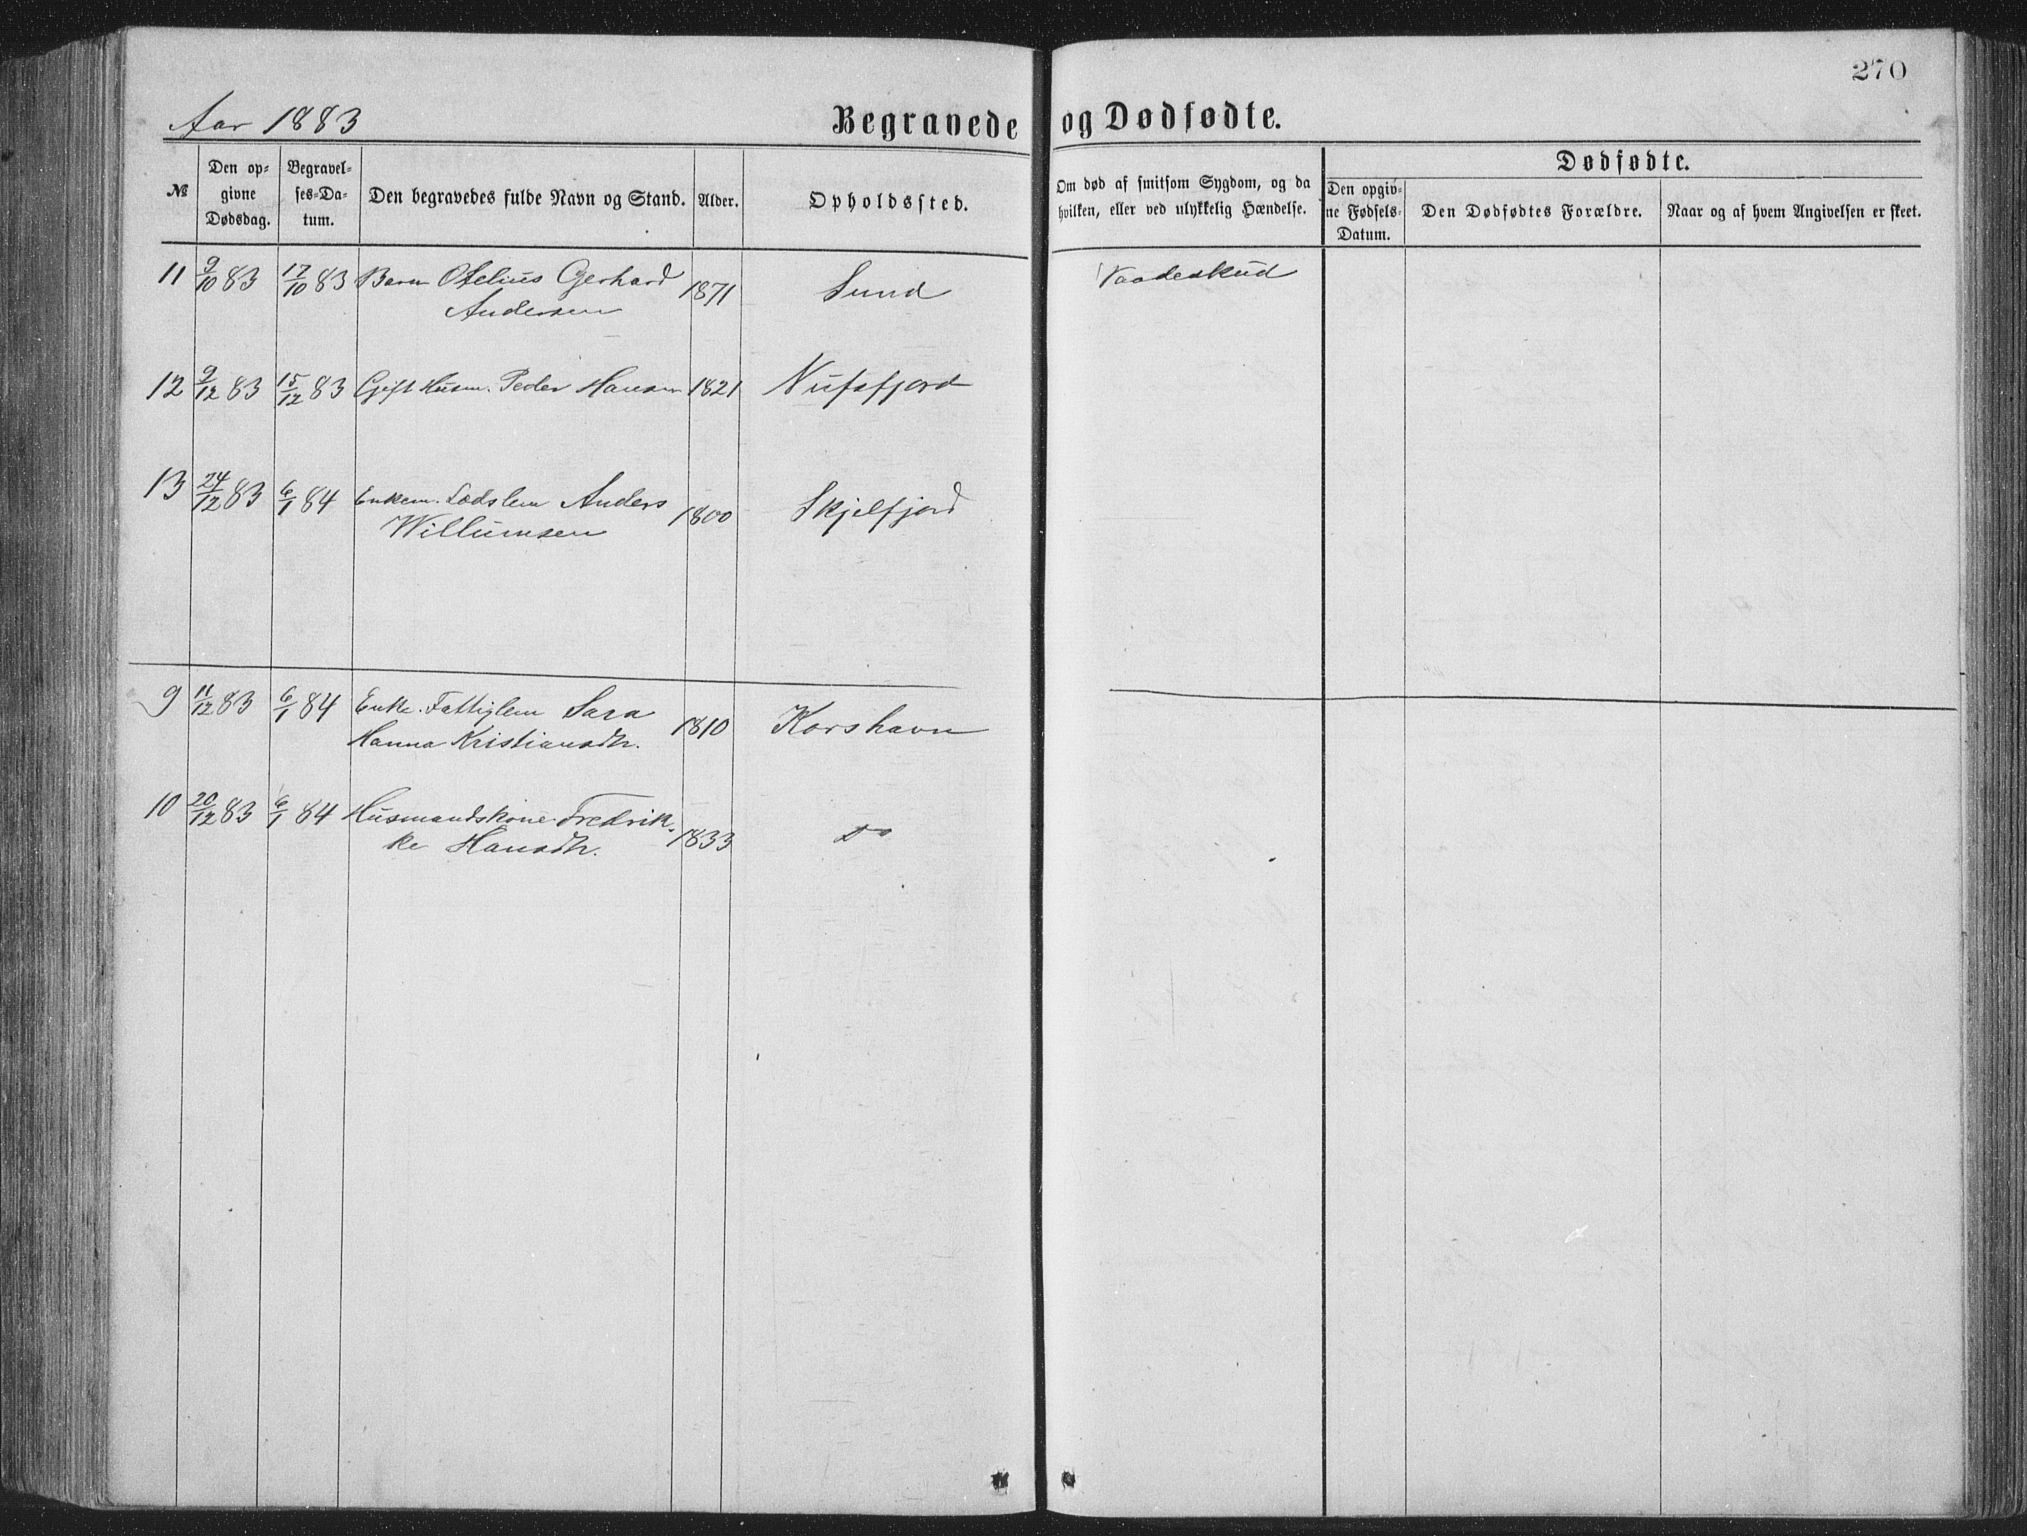 270
Aar 1883 Begravede og Dødfødte.
№ Den op- Begravel- Den begravedes fulde Navn og Stand. Alder. Opholdssted. Om død af smitsom Sygdom, og da Dødfødte.
givne ses-Da- hvilken, eller ved ulykkelig Hændelse. Den opgiv- Den Dødfødtes Forældre. Naar og af hvem Angivelsen er skeet.
Dødsdag. tum. ne Fødsels-
Datum.
11 9/10 83 17/10 83 Barn Ofelius Gerhard 1871 Sund Vaadeskud
Andersen
12 9/12 83 15/12 83 Gift Husm. Peder Hansen 1821 Nufsfjord
13 24/12 83 6/1 84 Enkem. Lodslem Anders 1800 Skjelfjord
Willumsen
9 11/12 83 6/1 84 Enke. Fattiglem Sara 1810 Korshavn
Hanna Kristiansdtr.
10 20/12 83 6/1 84 Husmandskone Fredrik- 1833 Do
ke Hansdtr.